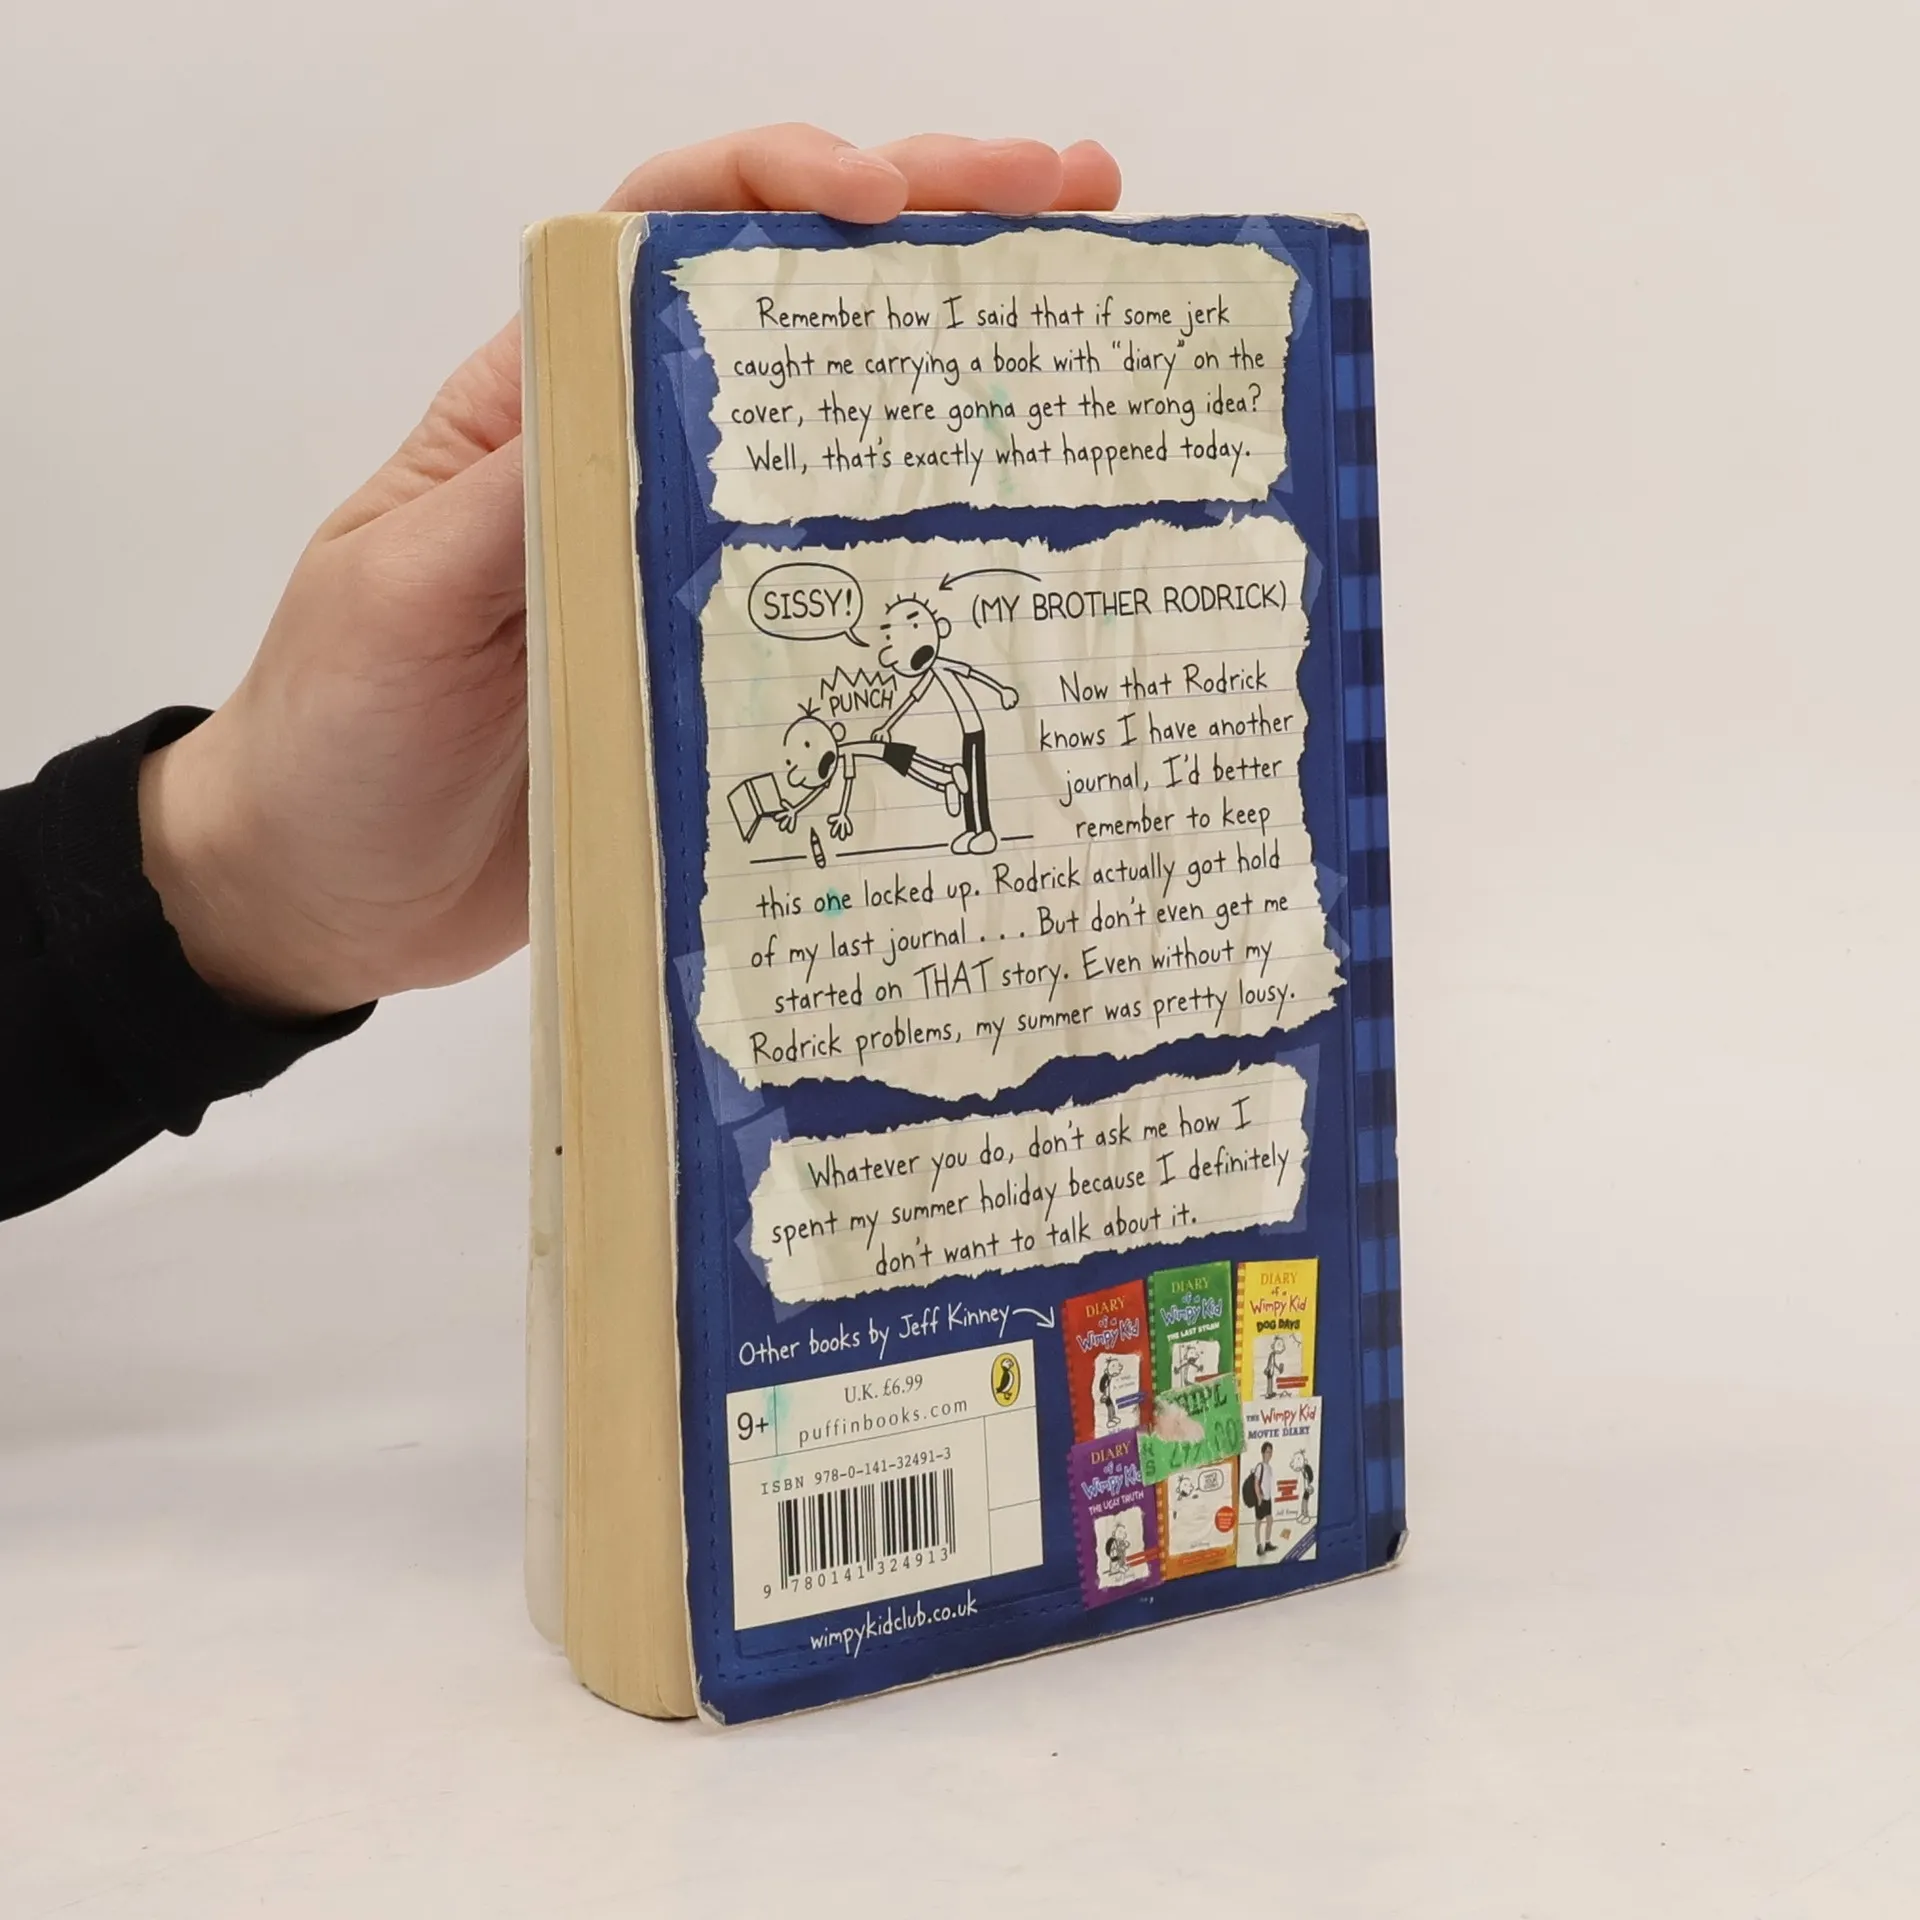 Remember how I said that if some jerk
caught me carrying a book with "diary" on the
cover, they were gonna get the wrong idea?
Well, that's exactly what happened today.
SISSY!
(MY BROTHER RODRICK)
PUNCH
Now that Rodrick
knows I have another
journal, I'd better
remember to keep
this one locked up. Rodrick actually got hold
of my last journal . . . But don't even get me
started on THAT story. Even without my
Rodrick problems, my summer was pretty lousy.
Whatever you do, don't ask me how I
spent my summer holiday because I definitely
don't want to talk about it.
Other books by Jeff Kinney
DIARY
of a
Wimpy Kid
DIARY
of a
Wimpy Kid
THE LAST STRAW
DIARY
of a
Wimpy Kid
DOG DAYS
DIARY
of a
Wimpy Kid
THE UGLY TRUTH
THE Wimpy Kid
MOVIE DIARY
9+
U.K. £6.99
puffinbooks.com
ISBN 978-0-141-32491-3
9 780141 324913
wimpykidclub.co.uk